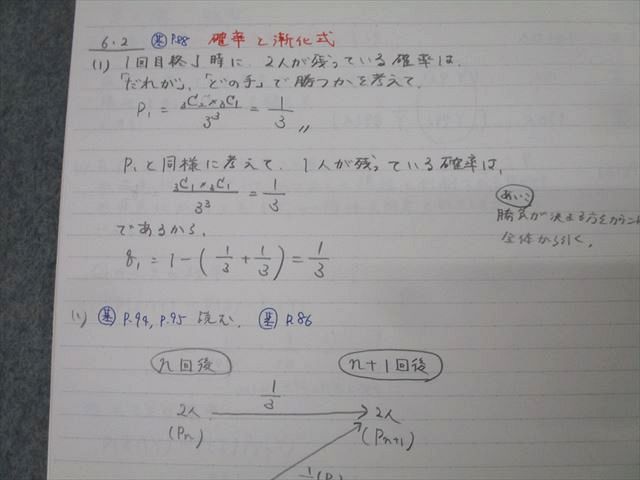 6.2 基 P.88 確率と漸化式
(1) 1回目終了時に、2人が残っている確率は、
「だれが」、「どの手」で勝つかを考えて、
P₁ = ₃C₂ × ₃C₁ / 3³ = 1/3 〃
P₁と同様に考えて、1人が残っている確率は、
₃C₁ × ₃C₁ / 3³ = 1/3
であるから、
q₁ = 1 - ( 1/3 + 1/3 ) = 1/3
あいこ
勝負が決まる方をカウント
全体から引く。
(2) 基 P.94, P.95 読む. 基 P.86
n回後 n+1回後
1/3
2人 2人
(Pn) (Pn+1)